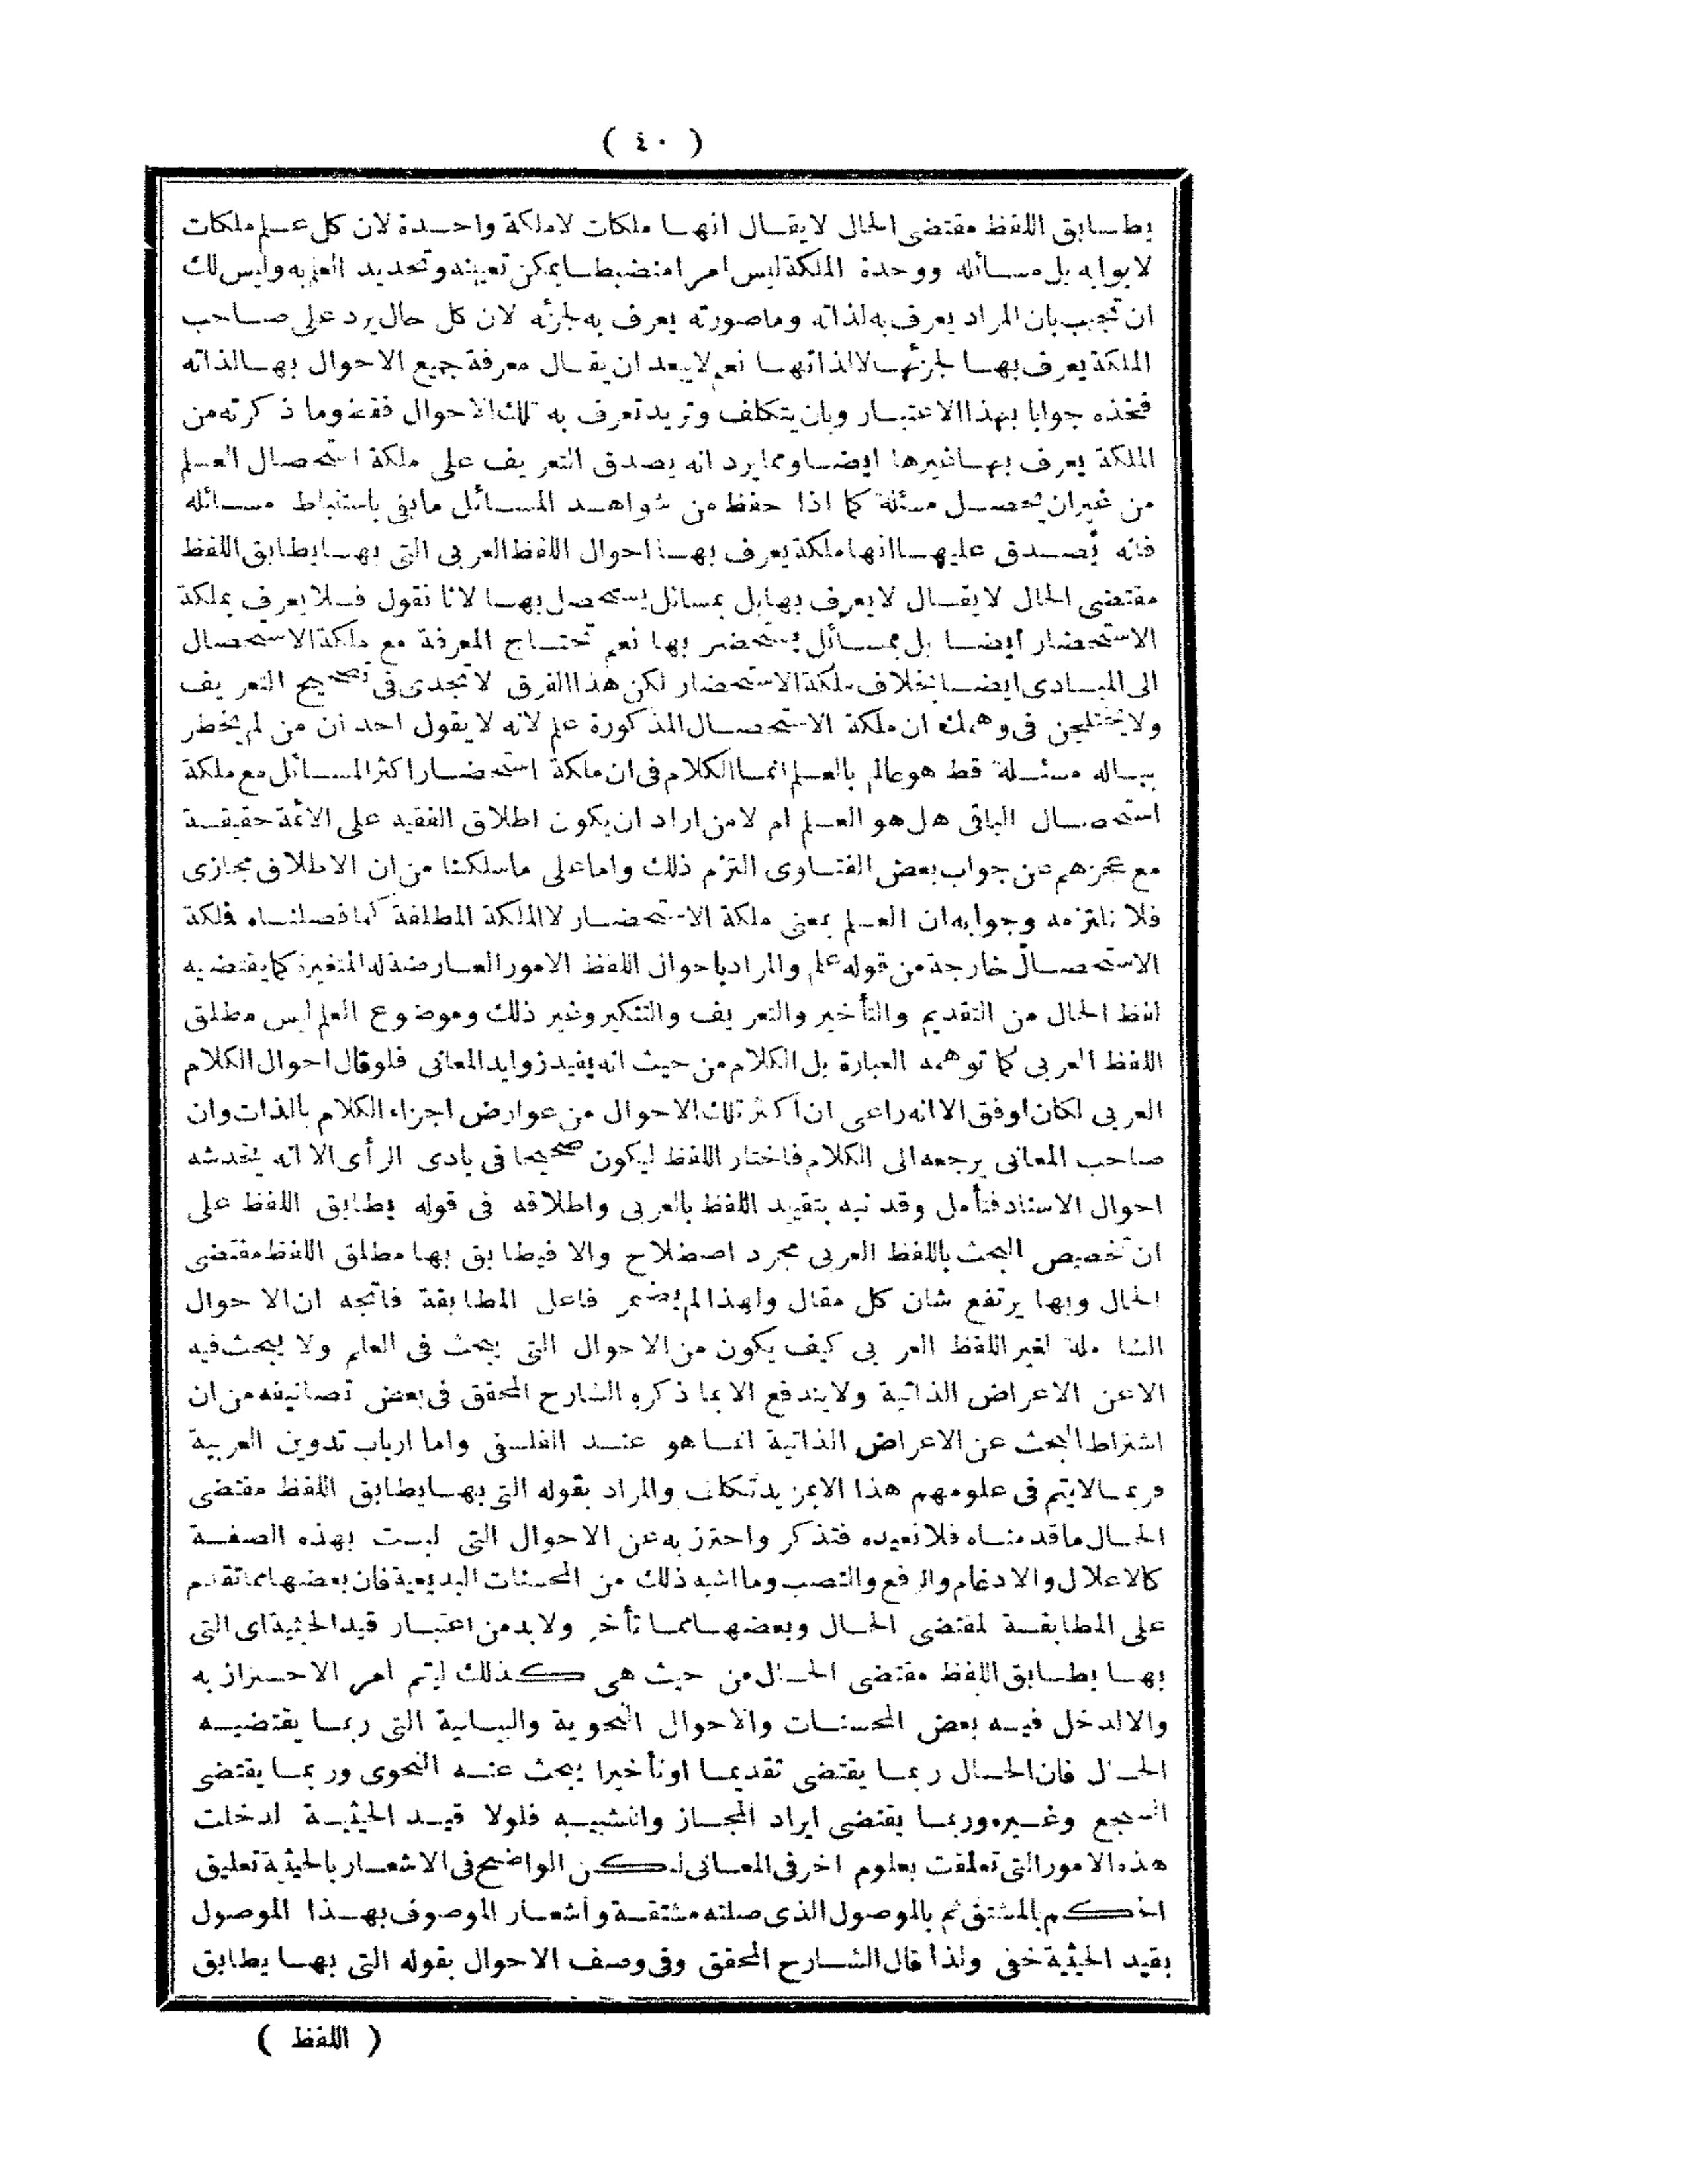 ( ٤٠ )
يطابق اللفظ مقتضى الحال لا يقال انها ملكات لا ملكة واحدة لان كل علم ملكات
لابوابه بل مسائله ووحدة الملكة ليس امرا منضبطا يمكن تعيينه وتحديد العلم به وليس لك
ان تجيب بان المراد يعرف به لذاته وما صورته يعرف به لجزئه لان كل حال يرد على صاحب
الملكة يعرف بها لجزئها لا لذاتها نعم لا يبعد ان يقال معرفة جميع الاحوال بها لذاته
فخذه جوابا بهذا الاعتبار وبان يتكلف وتريد تعرف به تلك الاحوال فقط وما ذكرته من
الملكة يعرف بها غيرها ايضا ومما يرد انه يصدق التعريف على ملكة استحصال العلم
من غير ان يحصل مسئلة كما اذا حفظ من شواهد المسائل ما يفى باستنباط مسائله
فانه يصدق عليها انها ملكة يعرف بها احوال اللفظ العربى التى بها يطابق اللفظ
مقتضى الحال لا يقال لا يعرف بها بل بمسائل يستحصل بها لانا نقول فلا يعرف بملكة
الاستحضار ايضا بل بمسائل يستحضر بها نعم تحتاج المعرفة مع ملكة الاستحصال
الى المبادى ايضا بخلاف ملكة الاستحضار لكن هذا الفرق لا تجدى فى تصحيح التعريف
ولا يختلجن فى وهمك ان ملكة الاستحصال المذكورة علم لانه لا يقول احد ان من لم يخطر
بباله مسئلة قط هو عالم بالعلم انما الكلام فى ان ملكة استحضار اكثر المسائل مع ملكة
استحصال الباقى هل هو العلم ام لا من اراد ان يكون اطلاق الفقيه على الائمة حقيقة
مع عجزهم عن جواب بعض الفتاوى التزم ذلك واما على ما سلكنا من ان الاطلاق مجازى
فلا نلتزمه وجوابه ان العلم بمعنى ملكة الاستحضار لا الملكة المطلقة كما فصلناه فملكة
الاستحصال خارجة من قوله علم والمراد باحوال اللفظ الامور العارضة له المتغيرة كما يقتضيه
لفظ الحال من التقديم والتأخير والتعريف والتنكير وغير ذلك وموضوع العلم ليس مطلق
اللفظ العربى كما توهمه العبارة بل الكلام من حيث انه يفيد زوايد المعانى فلو قال احوال الكلام
العربى لكان اوفق الا انه راعى ان اكثر تلك الاحوال من عوارض اجزاء الكلام بالذات وان
صاحب المعانى يرجعه الى الكلام فاختار اللفظ ليكون صحيحا فى بادى الرأى الا انه يخدشه
احوال الاسناد فتأمل وقد نبه بتقييد اللفظ بالعربى واطلاقه فى قوله يطابق اللفظ على
ان تخصيص البحث باللفظ العربى مجرد اصطلاح والا فيطابق بها مطلق اللفظ مقتضى
الحال وبها يرتفع شان كل مقال ولهذا لم يضمر فاعل المطابقة فاتجه ان الاحوال
الشاملة لغير اللفظ العربى كيف يكون من الاحوال التى يبحث فى العلم ولا يبحث فيه
الا عن الاعراض الذاتية ولا يندفع الا بما ذكره الشارح المحقق فى بعض تصانيفه من ان
اشتراط البحث عن الاعراض الذاتية انما هو عند الفلسفى واما ارباب تدوين العربية
فربما لا يتم فى علومهم هذا الا بمزيد تكلف والمراد بقوله التى بها يطابق اللفظ مقتضى
الحال ما قدمناه فلا نعيده فتذكر واحترز به عن الاحوال التى ليست بهذه الصفة
كالاعلال والادغام والرفع والنصب وما اشبه ذلك من المحسنات البديعية فان بعضها مما تقدم
على المطابقة لمقتضى الحال وبعضها مما تأخر ولا بد من اعتبار قيد الحيثية اى التى
بها يطابق اللفظ مقتضى الحال من حيث هى كذلك ليتم امر الاحتراز به
والا لدخل فيه بعض المحسنات والاحوال النحوية والبيانية التى ربما يقتضيه
الحال فان الحال ربما يقتضى تقديما او تأخيرا يبحث عنه النحوى وربما يقتضى
السجع وغيره وربما يقتضى ايراد المجاز والتشبيه فلولا قيد الحيثية لدخلت
هذه الامور التى تعلقت بعلوم اخر فى المعانى لكن الواضح فى الاشعار بالحيثية تعليق
الحكم بالمشتق ثم بالموصول الذى صلته مشتقة واشعار الموصوف بهذا الموصول
بقيد الحيثية خفى ولذا قال الشارح المحقق وفى وصف الاحوال بقوله التى بها يطابق
( اللفظ )